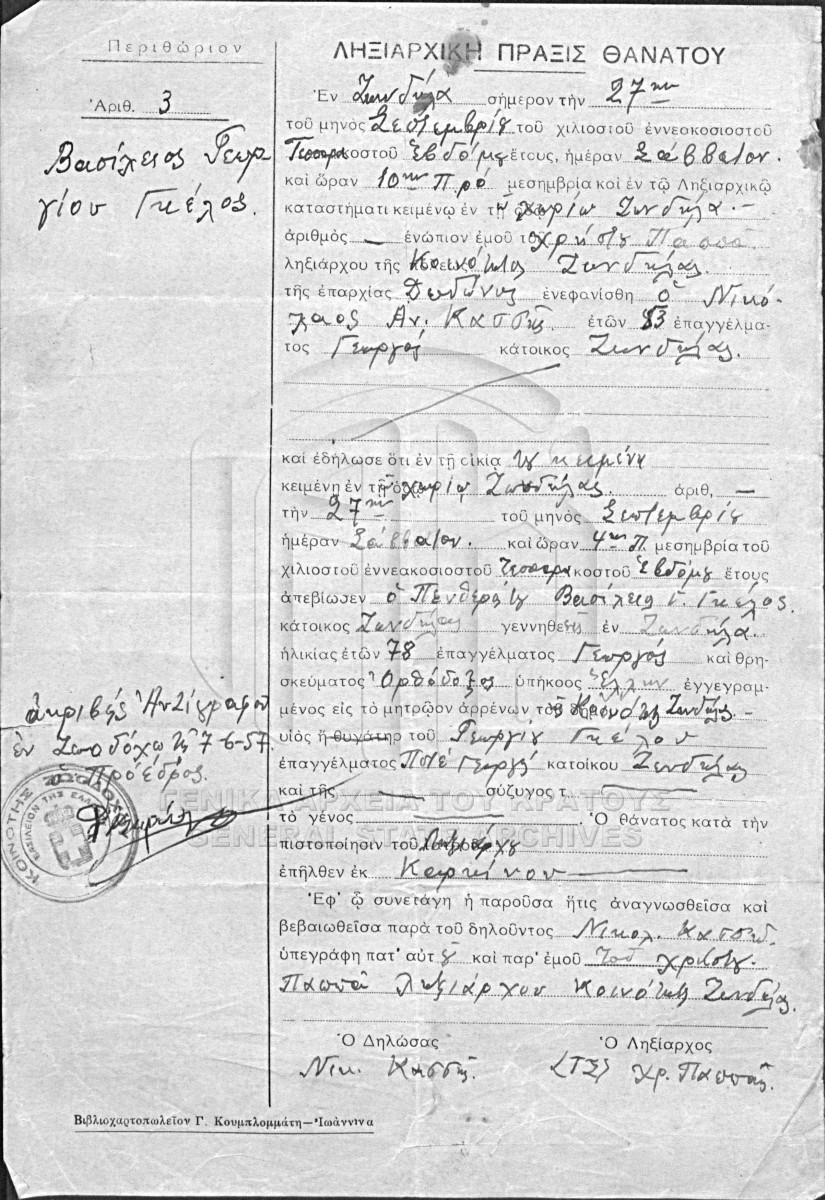 Περιθώριον
Ἀριθ. 3
Βασίλειος Γεωρ
γίου Γκέλος.
ΛΗΞΙΑΡΧΙΚΗ ΠΡΑΞΙΣ ΘΑΝΑΤΟΥ
Ἐν Ζωνδήλα σήμερον τὴν 27ην
τοῦ μηνὸς Σεπτεμβρίου τοῦ χιλιοστοῦ ἐννεακοσιοστοῦ
Τεσσαρακοστοῦ Ἑβδόμου ἔτους, ἡμέραν Σάββατον.
καὶ ὥραν 10ην Πρὸ μεσημβρία καὶ ἐν τῷ Ληξιαρχικῷ
καταστήματι κειμένῳ ἐν τῇ χωρίω Ζωνδήλα.-
ἀριθμὸς — ἐνώπιον ἐμοῦ τοῦ χρήστου Παππᾶ
ληξιάρχου τῆς Κοινότητος Ζωνδήλας.
τῆς ἐπαρχίας Δωδώνης ἐνεφανίσθη ὁ Νικό-
λαος Αν. Κασσῆς. ἐτῶν 53 ἐπαγγέλμα-
τος Γεωργός κάτοικος Ζωνδήλας.
καὶ ἐδήλωσε ὅτι ἐν τῇ οἰκίᾳ του κειμένη
κειμένη ἐν τῇ χωρίω Ζωνδήλας. ἀριθ, —
τὴν 27ην τοῦ μηνὸς Σεπτεμβρίου
ἡμέραν Σάββατον. καὶ ὥραν 4ην Π. μεσημβρία τοῦ
χιλιοστοῦ ἐννεακοσιοστοῦ Τεσσαρακοστοῦ Ἑβδόμου ἔτους
ἀπεβίωσεν ὁ Πενθερός του Βασίλειος Γ. Γκέλος.
κάτοικος Ζωνδήλας γεννηθεὶς ἐν Ζωνδήλα.
ἡλικίας ἐτῶν 78 ἐπαγγέλματος Γεωργός καὶ θρη-
σκεύματος Ὀρθόδοξος ὑπήκοος Ἕλλην ἐγγεγραμ-
μένος εἰς τὸ μητρῷον ἀρρένων τοῦ Κοινότης Ζωνδήλας.-
υἱὸς ἢ θυγάτηρ τοῦ Γεωργίου Γκέλου
ἐπαγγέλματος Ποτέ Γεωργός κατοίκου Ζωνδήλας
καὶ τῆς — σύζυγος τ. —
τὸ γένος —. Ὁ θάνατος κατὰ τὴν
πιστοποίησιν τοῦ Ληξιάρχου
ἐπῆλθεν ἐκ Καρκίνου
Ἐφ' ᾧ συνετάγη ἡ παροῦσα ἥτις ἀναγνωσθεῖσα καὶ
βεβαιωθεῖσα παρὰ τοῦ δηλοῦντος Νικολ. Κασσῆ.
ὑπεγράφη πατ' αὐτοῦ καὶ παρ' ἐμοῦ τοῦ χρίστου.
Παππᾶ ληξιάρχου Κοινότητος Ζωνδήλας.
Ὁ Δηλώσας
Νικ. Κασσῆς.
Ὁ Ληξίαρχος
(ΤΣ) χρ. Παππᾶς
ἀκριβές Ἀντίγραφον
ἐν Ζωοδόχω τῇ 7-6-57.
Ὁ Πρόεδρος.
ΚΟΙΝΟΤΗΣ ΖΩΟΔΟΧΟΥ
ΒΑΣΙΛΕΙΟΝ ΤΗΣ ΕΛΛΑΔΟΣ
ΓΕΝΙΚΑ ΑΡΧΕΙΑ ΤΟΥ ΚΡΑΤΟΥΣ
GENERAL STATE ARCHIVES
Βιβλιοχαρτοπωλεῖον Γ. Κουμπλομμάτη—Ἰωάννινα